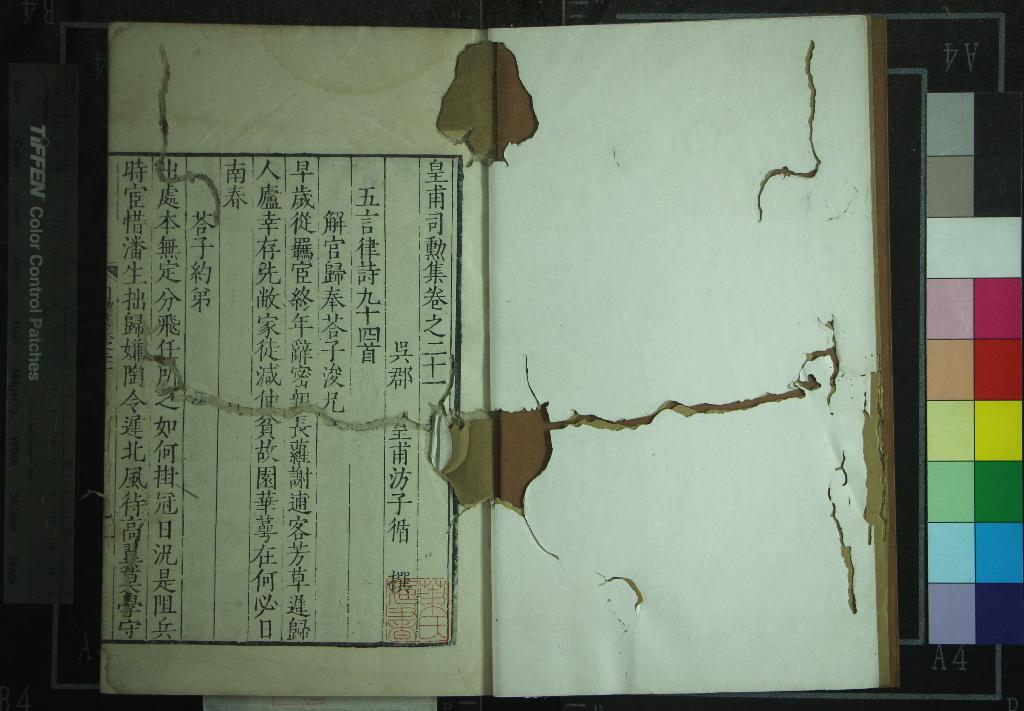 皇甫司勲集卷之二十一
吳郡 皇甫汸子循 撰
五言律詩九十四首
解官歸奉荅子浚兄
早歲從羈宦終年辭密親長蘿謝逋客芳草遲歸
人廬幸存先敝家徒減仲貧故園華萼在何必日
南春
荅子約弟
出處本無定分飛任所之如何掛冠日況是阻兵
時宦惜潘生拙歸嫌陶令遲北風待高翼莫學守
TIFFEN Color Control Patches
A4
A4
B4